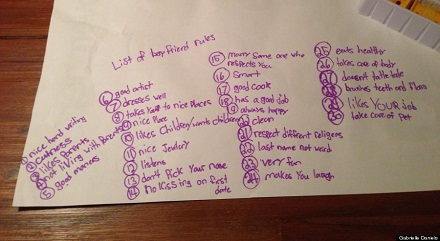 List of boyfriend rules
① nice hand writing
② cuteness
③ likes Parents
④ not living with Parents
⑤ good manners
⑥ good artist
⑦ dresses well
⑧ takes you to nice Places
⑨ nice
⑩ likes Children/wants children
⑪ nice Jewlery
⑫ listens
⑬ don't pick your nose
⑭ no kissing on first
date
⑮ marry some one who
respects you
⑯ Smart
⑰ good cook
⑱ has a good job
⑲ always happy
⑳ clean
㉑ respect different religens
㉒ last name not weird
㉓ very fun
㉔ makes you laugh
㉕ eats healthy
㉖ takes care of body
㉗ doesn't tattle tale
㉘ brushes teeth and floss
㉙ likes YOUR job
㉚ take care of Pet
Gabrielle Daniels